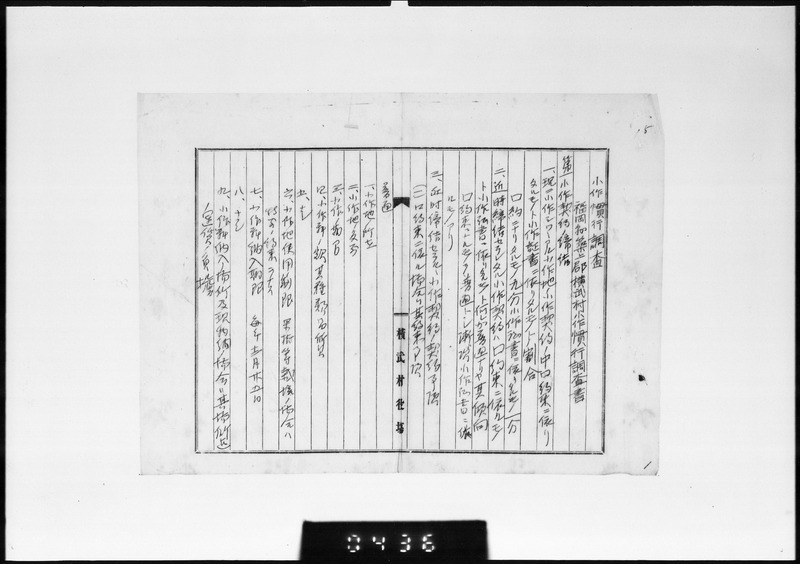 小作慣行調査
福岡縣築上郡横武村小作慣行調査書
第一 小作契約ノ締結
一、現ニ小作シツヽアル小作地小作契約ノ中口約束ニ依リ
タルモノト小作証書ニ依リタルモノトノ割合
口約ニヨリタルモノ九分小作証書ニ依ルモノ一分
二、近時締結セラレタル小作契約ハ口約束ニ依ルモノ
ト小作証書ニ依ルモノト何レカ普通ナリヤ其傾向
口約束ニヨルモノ普通トシ漸次小作証書ニ依
ルモノアリ
三、近時締結セラルヽ小作契約ノ契約事項
(一)口約束ニ依ル場合ハ其約束事項
普通
一、小作地ノ所在
二、小作地
三、小作ノ期間
四、小作料ノ額其種類
五、ナシ
六、小作地使用制限 果樹等栽培ノ場合ハ
特ニ約束ヲナス
七、小作料納入期限 毎年十二月廿五日
八、ナシ
九、小作料納入場所及
横武村役場
0436